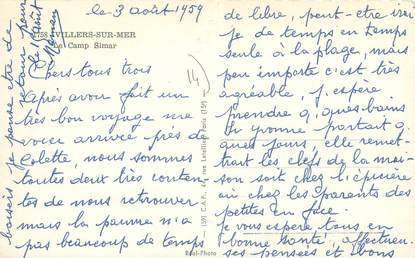 le 3 août 1959
1758 VILLERS-SUR-MER
Le Camp Simar
Chers tous trois
Après avoir fait un
très bon voyage me
voici arrivée près de
Colette, nous sommes
toutes deux très conten-
tes de nous retrouver
mais la pauvre n'a
pas beaucoup de temps
de libre, peut-être irai
je de temps en temps
seule à la plage, mais
peu importe c'est très
agréable, j'espère
prendre q. ques bains
Si Yvonne partait q
ques jours, elle remet-
trait les clefs de la mai-
son soit chez l'épicière
où chez les parents des
petites en face.
je vous espère tous en
bonne santé, affectueu-
ses pensées et bons
baisers je pense être de
retour pour
le 15 août
Maman
(59) C.A.P. 44, rue Letellier, Paris (15e)
Réal-Photo
14